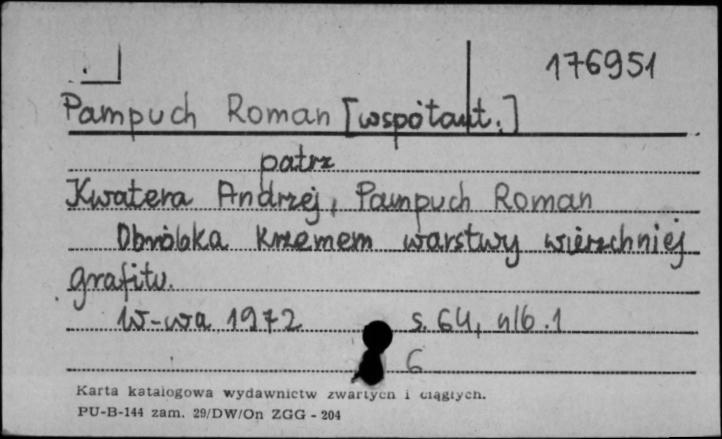 176951
Pampuch Roman [współaut.]
patrz
Kwatera Andrzej, Pampuch Roman
Obróbka krzemem warstwy wierzchniej
grafitu.
W-wa 1972 s. 64, nlb. 1
6
Karta katalogowa wydawnictw zwartych i ciągłych.
PU-B-144 zam. 29/DW/On ZGG - 204